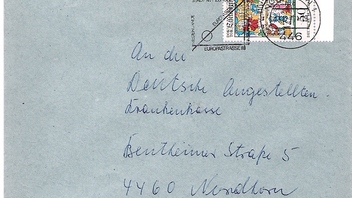 EUROPASTRASSE 88
446
An die
Deutsche Angestellten-
Krankenkasse
Bentheimer Straße 5
4460 Nordhorn